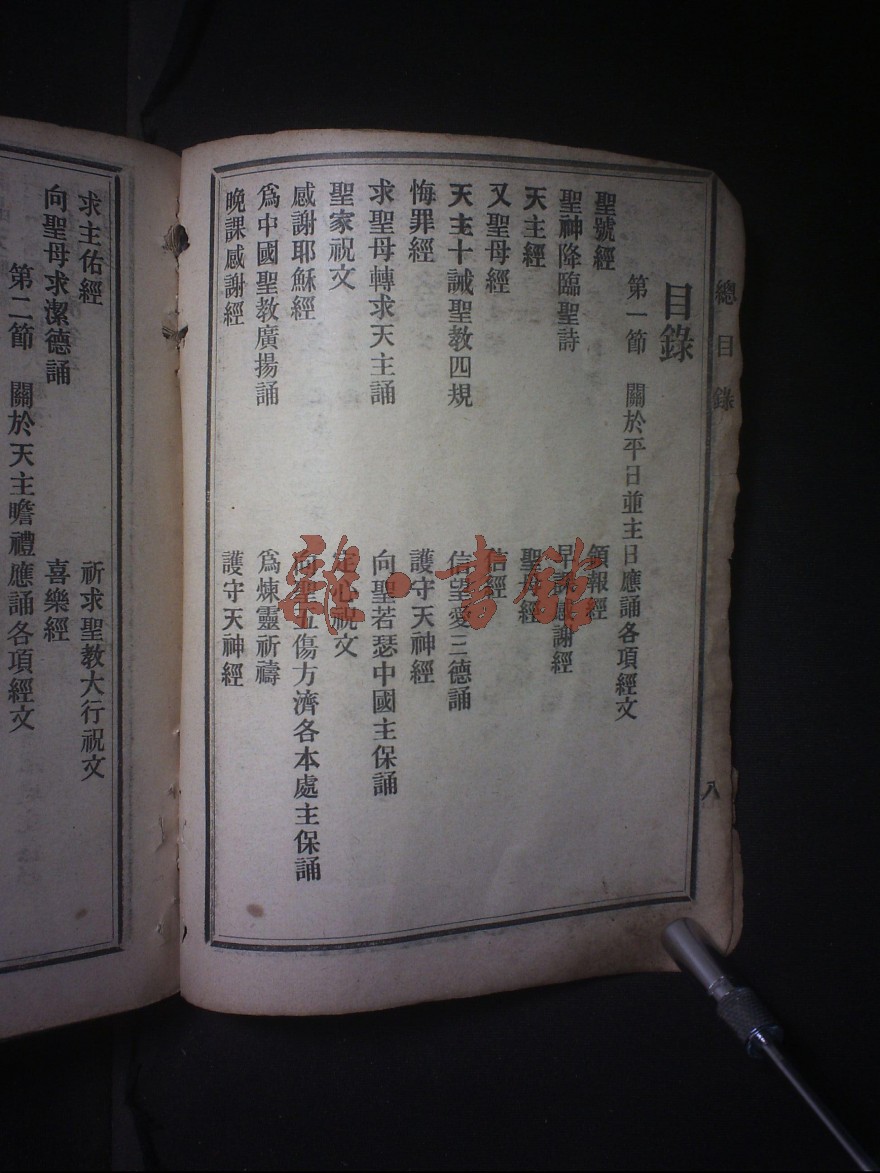 總目錄
八
目錄
第一節 關於平日並主日應誦各項經文
聖號經 領報經
聖神降臨聖詩 早課感謝經
天主經 聖母經
又聖母經 信經
天主十誡聖教四規 信望愛三德誦
悔罪經 護守天神經
求聖母轉求天主誦 向聖若瑟中國主保誦
聖家祝文 定心祝文
感謝耶穌經 向聖五傷方濟各本處主保誦
為中國聖教廣揚誦 為煉靈祈禱
晚課感謝經 護守天神經
求主佑經 祈求聖教大行祝文
向聖母求潔德誦 喜樂經
第二節 關於天主瞻禮應誦各項經文
雜·書館